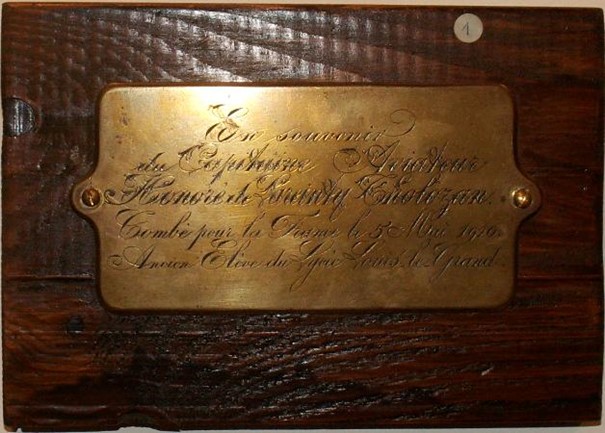 1
En souvenir
du Capitaine Aviateur
Honoré de Lareinty Tholozan.
Tombé pour la France le 5 Mai 1916.
Ancien Elève du Lycée Louis le Grand.